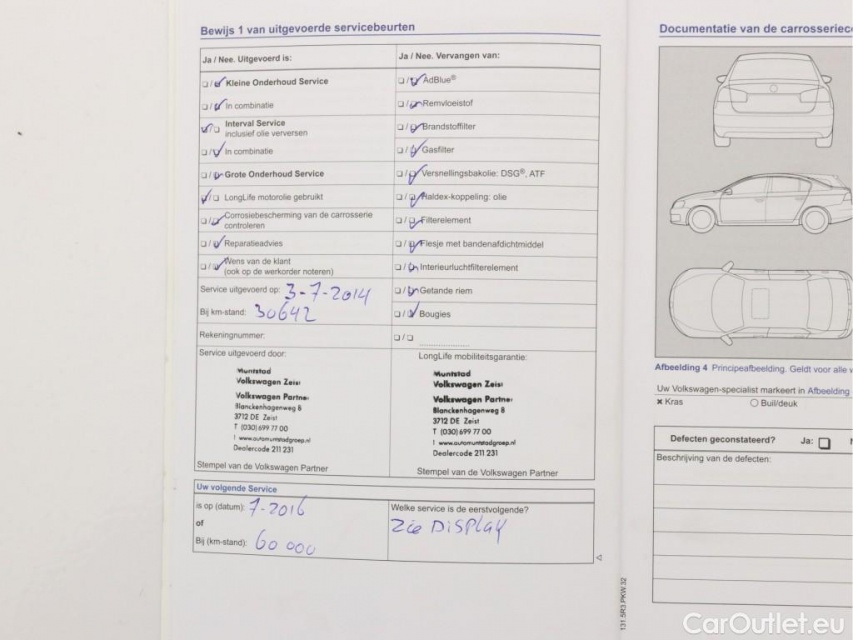 Bewijs 1 van uitgevoerde servicebeurten
Ja / Nee. Uitgevoerd is:
Kleine Onderhoud Service
In combinatie
Interval Service
inclusief olie verversen
In combinatie
Grote Onderhoud Service
LongLife motorolie gebruikt
Corrosiebescherming van de carrosserie
controleren
Reparatieadvies
Wens van de klant
(ook op de werkorder noteren)
Service uitgevoerd op: 3-7-2014
Bij km-stand: 30642
Rekeningnummer:
Ja / Nee. Vervangen van:
AdBlue®
Remvloeistof
Brandstoffilter
Gasfilter
Versnellingsbakolie: DSG®, ATF
Haldex-koppeling: olie
Filterelement
Flesje met bandenafdichtmiddel
Interieurluchtfilterelement
Getande riem
Bougies
Service uitgevoerd door:
Muntstad
Volkswagen Zeist
Volkswagen Partner
Blanckenhagenweg 8
3712 DE Zeist
T (030) 699 77 00
I www.automuntstadgroep.nl
Dealercode 211 231
Stempel van de Volkswagen Partner
LongLife mobiliteitsgarantie:
Muntstad
Volkswagen Zeist
Volkswagen Partner
Blanckenhagenweg 8
3712 DE Zeist
T (030) 699 77 00
I www.automuntstadgroep.nl
Dealercode 211 231
Stempel van de Volkswagen Partner
Uw volgende Service
is op (datum): 7-2016
of
Bij (km-stand): 60 000
Welke service is de eerstvolgende?
Zie DISPLAY
131.5R3.PKW.32
Documentatie van de carrosseriec
Afbeelding 4 Principeafbeelding. Geldt voor alle v
Uw Volkswagen-specialist markeert in Afbeelding
Kras
Buil/deuk
Defecten geconstateerd? Ja:
Beschrijving van de defecten:
CarOutlet.eu